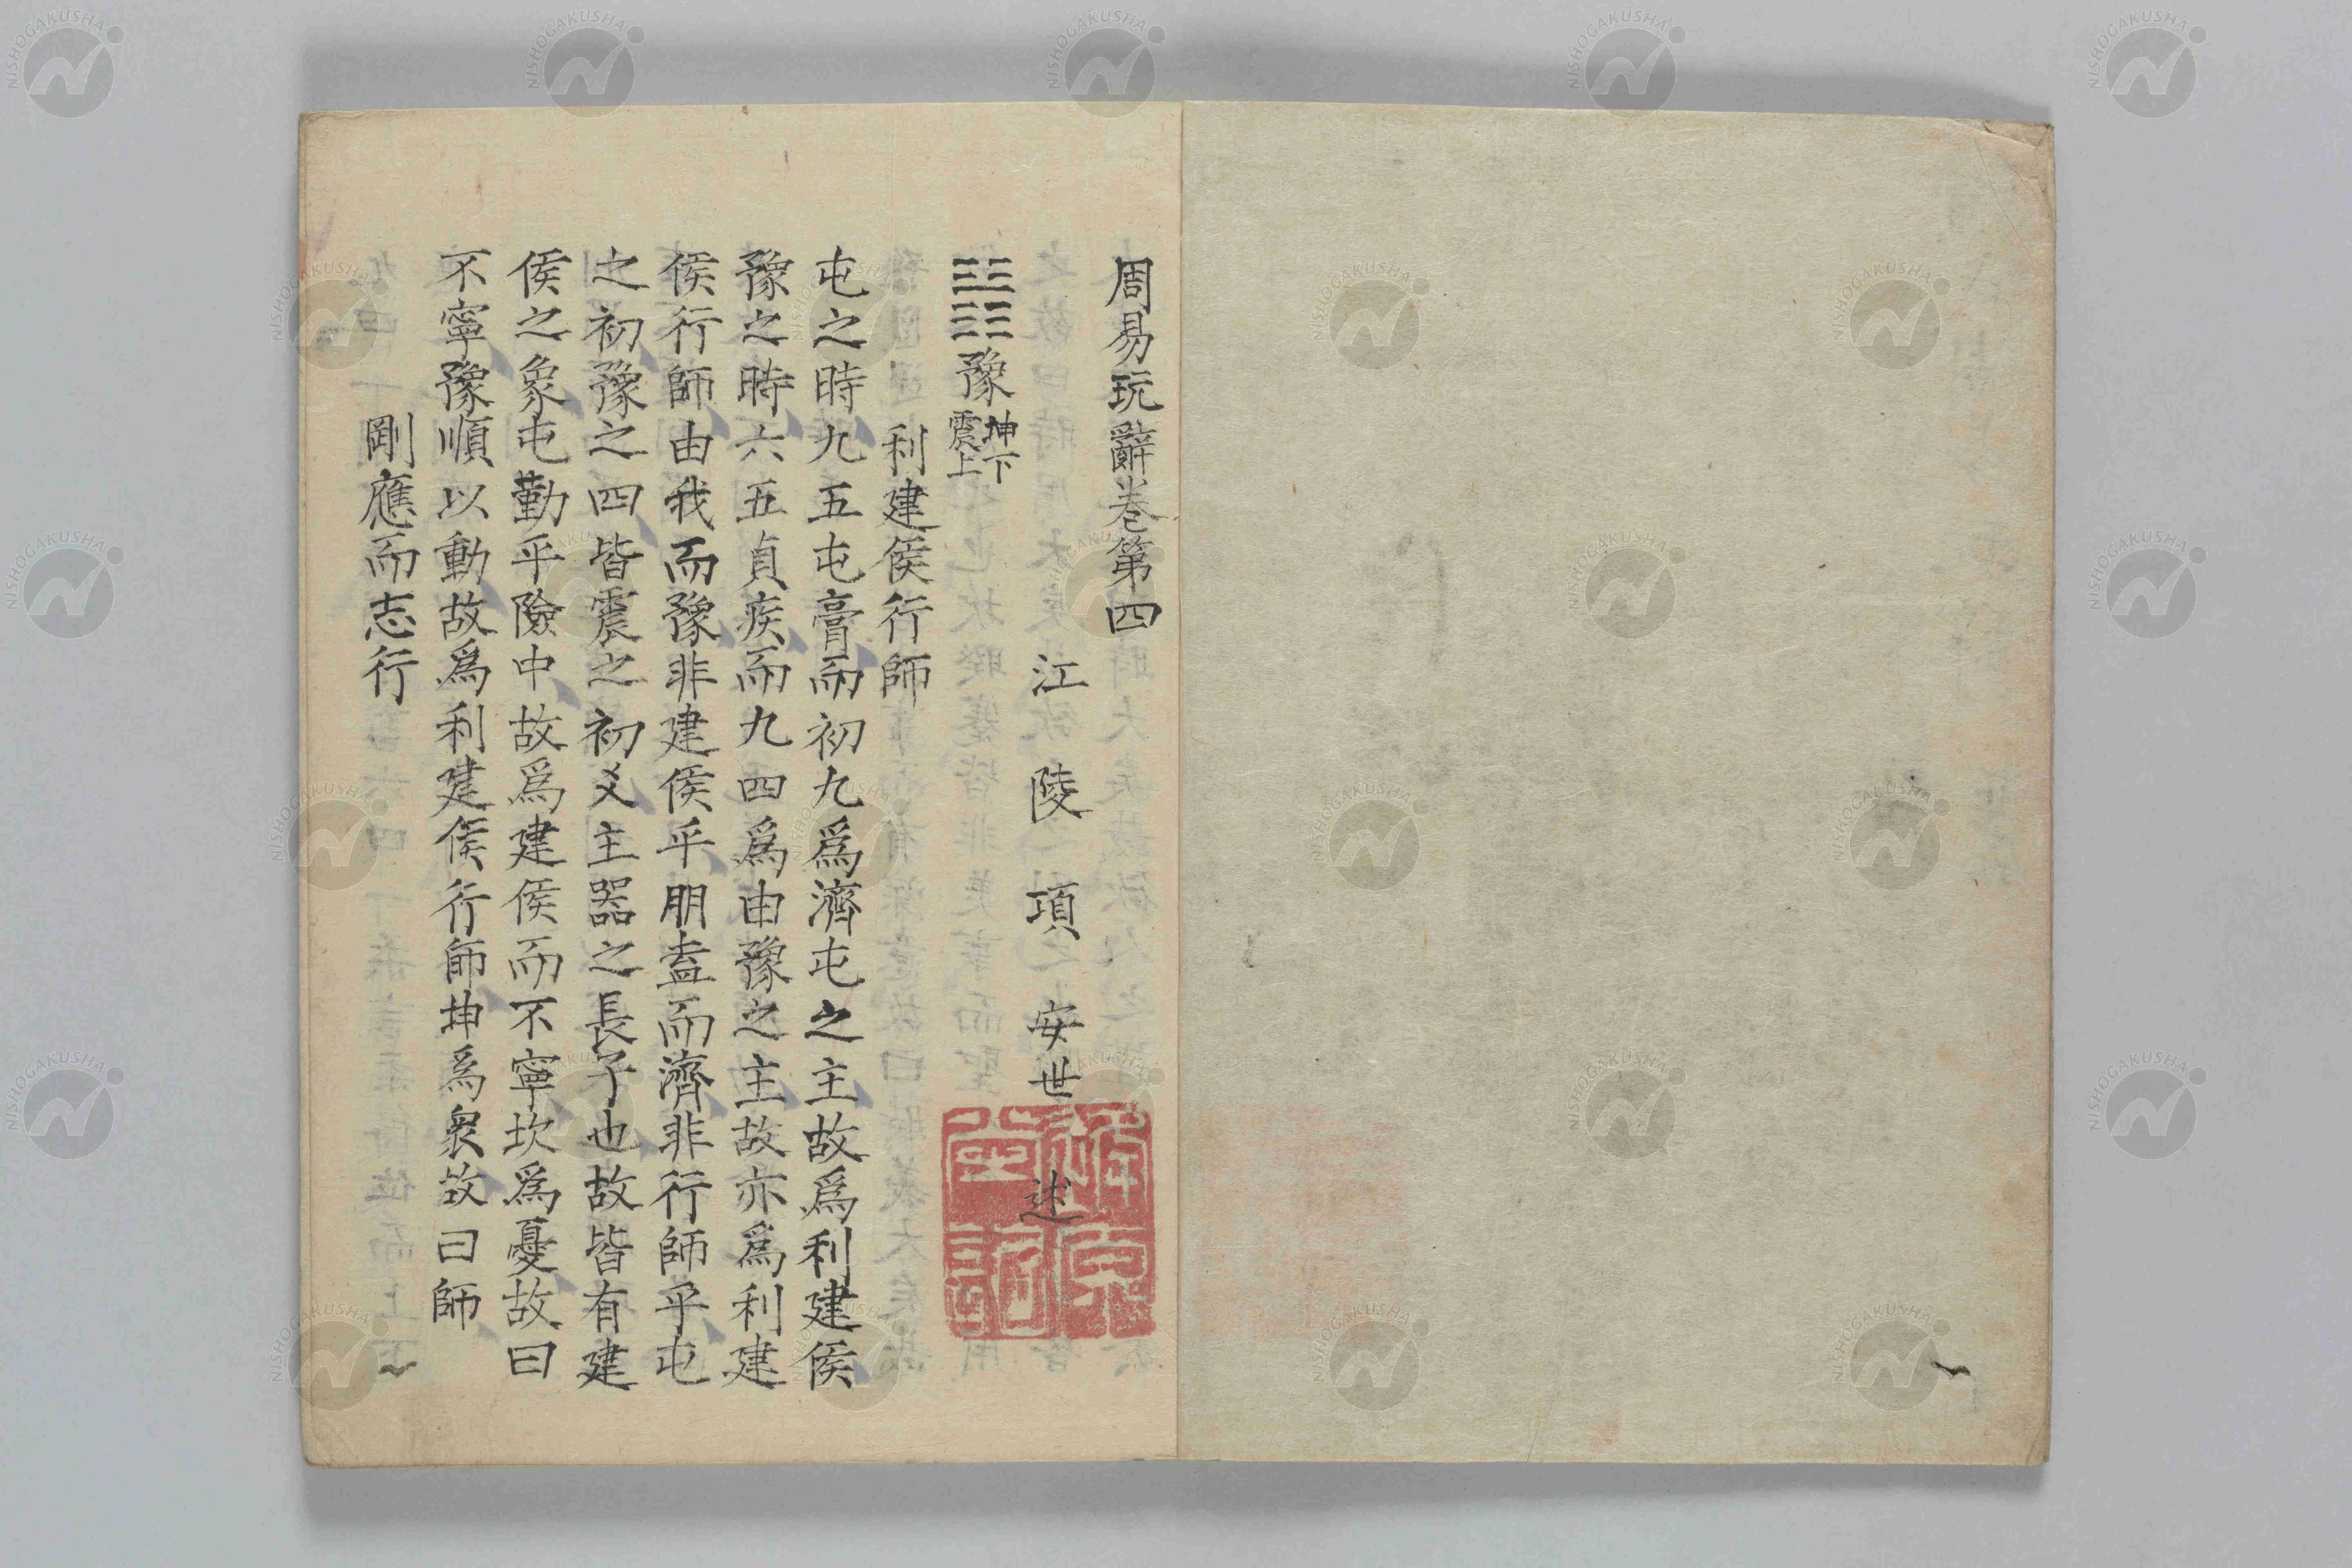 周易玩辭卷第四
江陵項安世述
豫 坤下震上
利建侯行師
屯之時九五屯膏而初九爲濟屯之主故爲利建侯
豫之時六五貞疾而九四爲由豫之主故亦爲利建
侯行師由我而豫非建侯乎朋盍而濟非行師乎屯
之初豫之四皆震之初爻主器之長子也故皆有建
侯之象屯勤乎險中故爲建侯而不寧坎爲憂故曰
不寧豫順以動故爲利建侯行師坤爲衆故曰師
剛應而志行
NISHOGAKUSHA